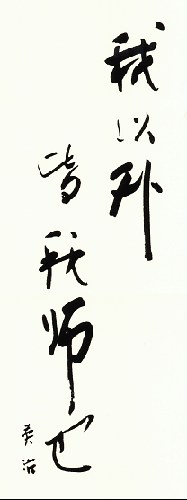 我以外
皆我师也
英治